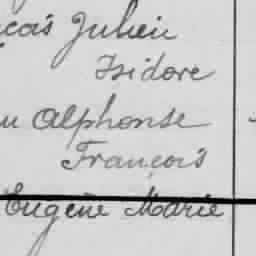 çois Julien
Isidore
Alphonse
François
Eugène Marie